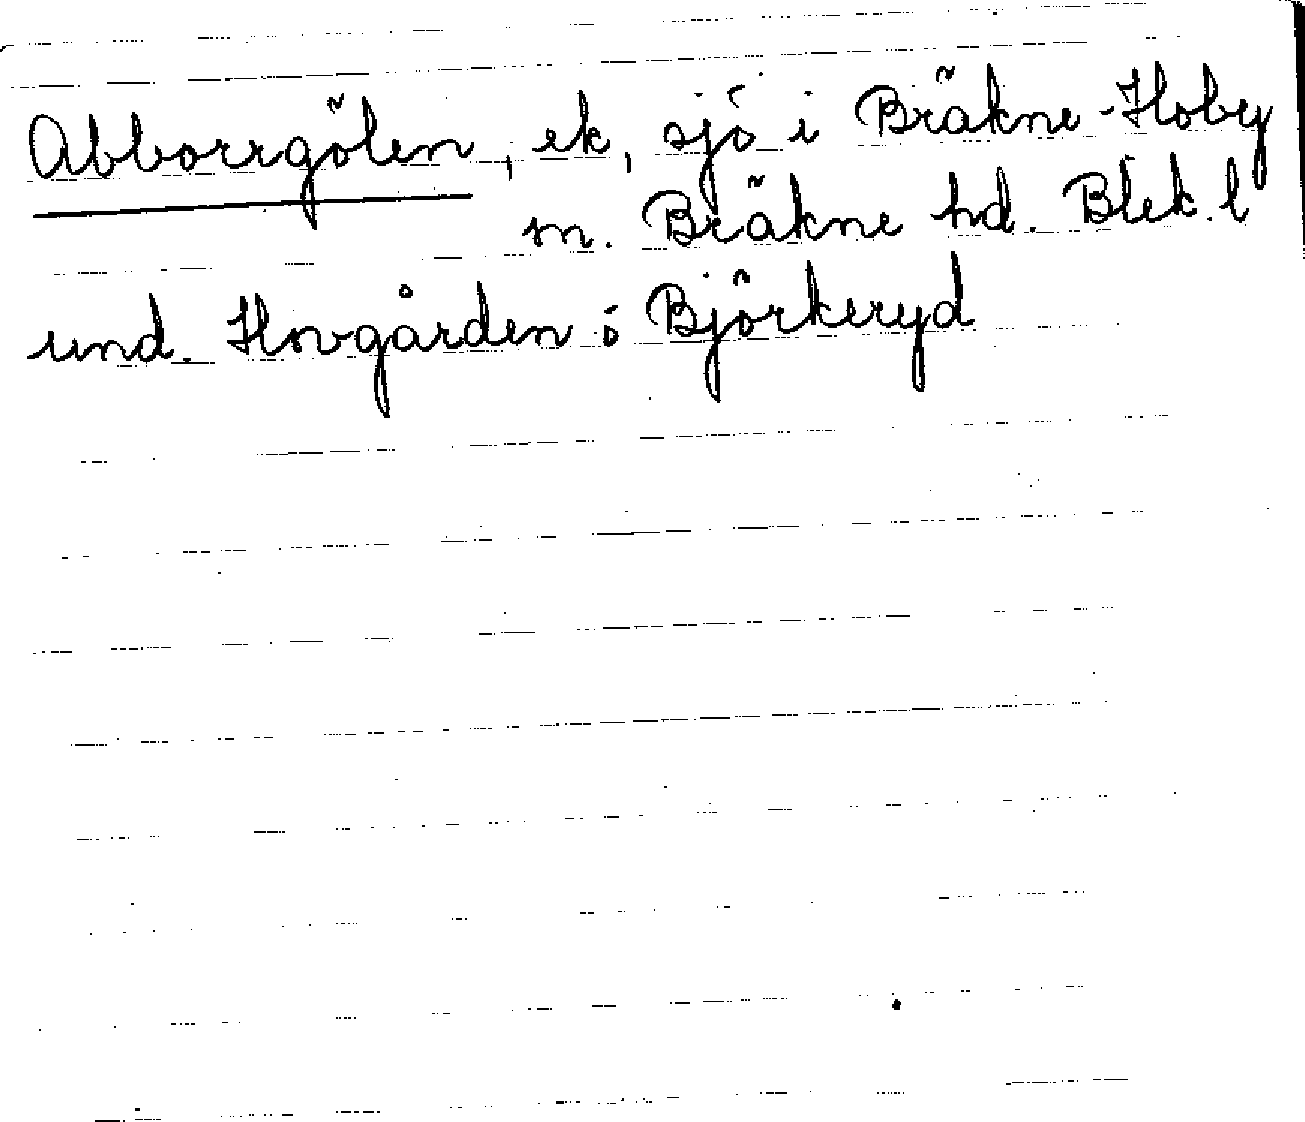 Abborrgölen, ek, sjö i Bräkne-Hoby
sn. Bräkne hd. Blek. l
und. Hovgården ö Björkeryd